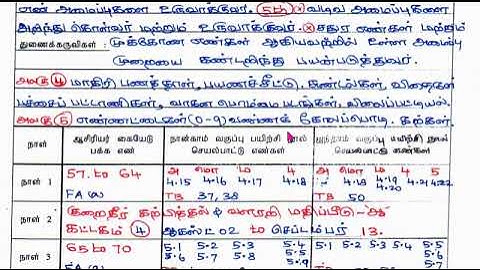 எண் அமைப்புகளை உருவாக்குவர். (5th) × வடிவ அமைப்புகளை
அறிந்து கொள்வர் மற்றும் உருவாக்குவர். × சதுர எண்கள் மற்றும்
துணைக்கருவிகள் : முக்கோண எண்கள் ஆகியவற்றில் உள்ள அமைப்பு
முறையை கண்டறிந்து பயன்படுத்துவர்.
அலகு 4 மாதிரி பணத்தாள், பயணச்சீட்டு, கண்டங்கள், விதைகள்
பச்சைப் பட்டாணிகள், வாகன பொம்மை படங்கள், விலைப்பட்டியல்.
அலகு 5 எண்ணட்டைகள் (0-9) வண்ணக் கோலப்பொடி. கற்கள்.
நாள் ஆசிரியர் கையேடு பக்க எண் நான்காம் வகுப்பு பயிற்சி நூல் செயல்பாட்டு எண்கள் ஐந்தாம் வகுப்பு பயிற்சி நூல் செயல்பாட்டு எண்கள்
நாள் 1 57 to 64 FA (வ) அ மொ ம 4 அ மொ ம 4 5
4.15 4.16 4.17 4.18 4.15 4.18 4.19 4.20 4.21 4.22
TB 37, 38 TB 50
நாள் 2 குறைதீர் கற்பித்தல் & வளரறி மதிப்பீடு-
கட்டகம் 4 ஆகஸ்ட் 02 to செப்டம்பர் 13.
நாள் 3 65 to 70 5.1 5.2 5.3 5.4 5.1 5.2 5.3 5.4 5.5
FA (வ) 5.6 5.7 5.8 5.5 5.6 5.7 5.8
5.9